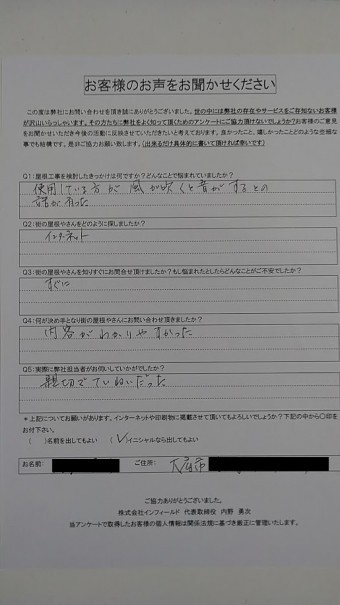 お客様のお声をお聞かせください
この度は弊社にお問い合わせを頂き誠にありがとうございました。世の中には弊社の存在やサービスをご存知ないお客様
が沢山いらっしゃいます。その方たちに弊社をよく知って頂くためのアンケートにご協力頂けないでしょうか?お客様のご意見
をお聞かせいただき今後の活動に反映させていただきたいと考えております。良かったこと、嬉しかったことどのような些細な
事でも結構です。是非ご協力お願い致します。(出来るだけ具体的に書いて頂ければ幸いです)
Q1:屋根工事を検討したきっかけは何ですか?どんなことで悩まれていましたか?
使用している方が風が吹くと音がするとの
話があった
Q2:街の屋根やさんをどのように探しましたか?
インターネット
Q3:街の屋根やさんを知りすぐにお問合せ頂けましたか?もし悩まれたとしたらどんなことがご不安でしたか?
すぐに
Q4:何が決め手となり街の屋根やさんにお問い合わせ頂きましたか?
内容がわかりやすかった
Q5:実際に弊社担当者がお伺いしていかがでしたか?
親切でていねいだった
*上記についてお願いがあります。インターネットや印刷物に掲載させて頂いてもよろしいでしょうか?下記の中から○印を
お付下さい。
( )名前を出してもよい (✓)イニシャルなら出してもよい
お名前: ご住所: 市
ご協力ありがとうございました。
株式会社インフィールド 代表取締役 内野 勇次
当アンケートで取得したお客様の個人情報は関係法規に基づき厳正に管理いたします。